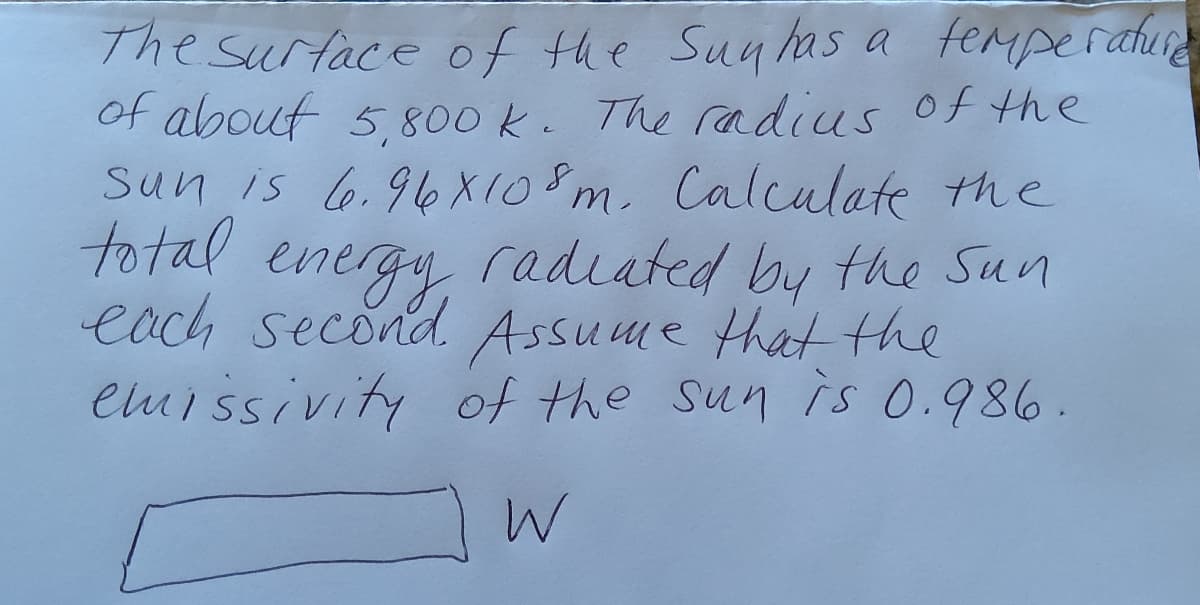 The surface of the Sun has a temperature
of about 5,800 k. The radius of the
sun is 6.96 X 10⁸ m. Calculate the
total energy radiated by the Sun
each second. Assume that the
emissivity of the sun is 0.986.
W